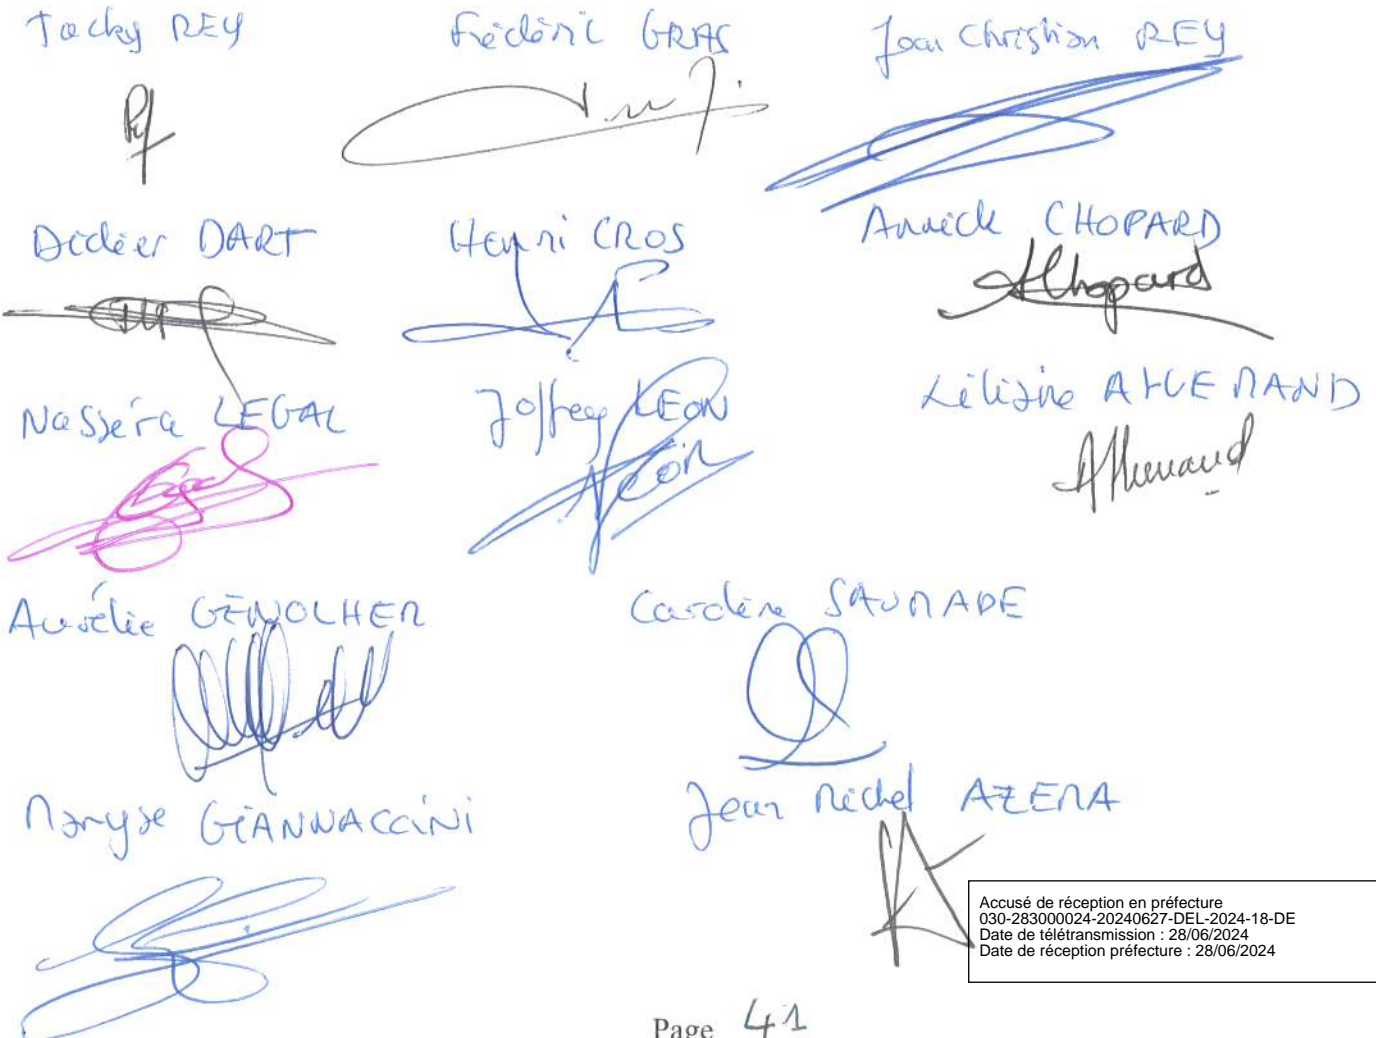 Jacky REY Frédéric GRAS Jean Christian REY
Didier DART Henri CROS Annick CHOPARD
AChopard
Nasséra LEGAL Joffrey LEON Liliane ALLEMAND
LEON Allemand
Aurélie GÉNOLHER Carolina SAUMADE
Maryse GIANNACCINI Jean Michel AZEMA
Accusé de réception en préfecture
030-283000024-20240627-DEL-2024-18-DE
Date de télétransmission : 28/06/2024
Date de réception préfecture : 28/06/2024
Page 41